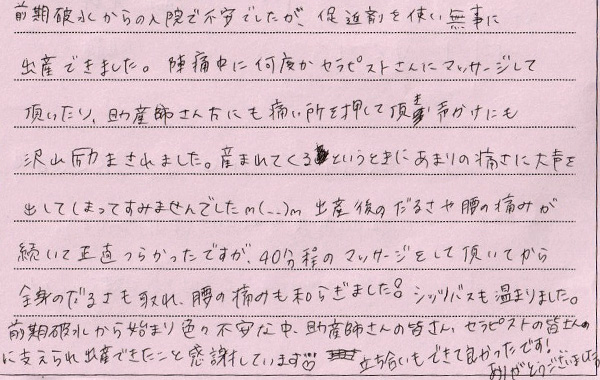 前期破水からの入院で不安でしたが、促進剤を使い無事に
出産できました。陣痛中に何度かセラピストさんにマッサージして
頂いたり、助産師さん方にも痛い所を押して頂き声かけにも
沢山励まされました。産まれてくるというときにあまりの痛さに大声を
出してしまってすみませんでしたm(_ _)m 出産後のだるさや腰の痛みが
続いて正直つらかったですが、40分程のマッサージをして頂いてから
全身のだるさも取れ、腰の痛みも和らぎました!! シッツバスも温まりました。
前期破水から始まり色々不安な中、助産師さんの皆さん、セラピストの皆さんの
に支えられ出産できたこと感謝しています 立ち合いもできて良かったです!
ありがとうございました